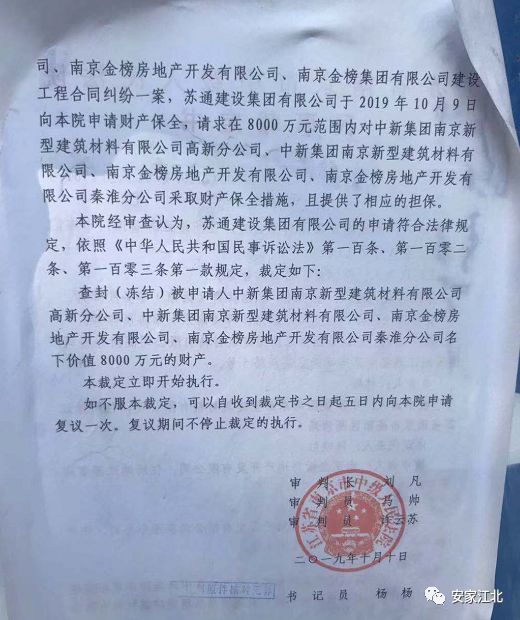 司、南京金榜房地产开发有限公司、南京金榜集团有限公司建设
工程合同纠纷一案，苏通建设集团有限公司于 2019 年 10 月 9 日
向本院申请财产保全，请求在 8000 万元范围内对中新集团南京新
型建筑材料有限公司高新分公司、中新集团南京新型建筑材料有
限公司、南京金榜房地产开发有限公司、南京金榜房地产开发有
限公司秦淮分公司采取财产保全措施，且提供了相应的担保。
本院经审查认为，苏通建设集团有限公司的申请符合法律规
定，依照《中华人民共和国民事诉讼法》第一百条、第一百零二
条、第一百零三条第一款规定，裁定如下：
查封（冻结）被申请人中新集团南京新型建筑材料有限公司
高新分公司、中新集团南京新型建筑材料有限公司、南京金榜房
地产开发有限公司、南京金榜房地产开发有限公司秦淮分公司名
下价值 8000 万元的财产。
本裁定立即开始执行。
如不服本裁定，可以自收到裁定书之日起五日内向本院申请
复议一次。复议期间不停止裁定的执行。
审 判 长 刘 凡
审 判 员 马 帅
审 判 员 许云苏
江苏省南京市中级人民法院
二〇一九年十月十日
书 记 员 杨 杨
安家江北